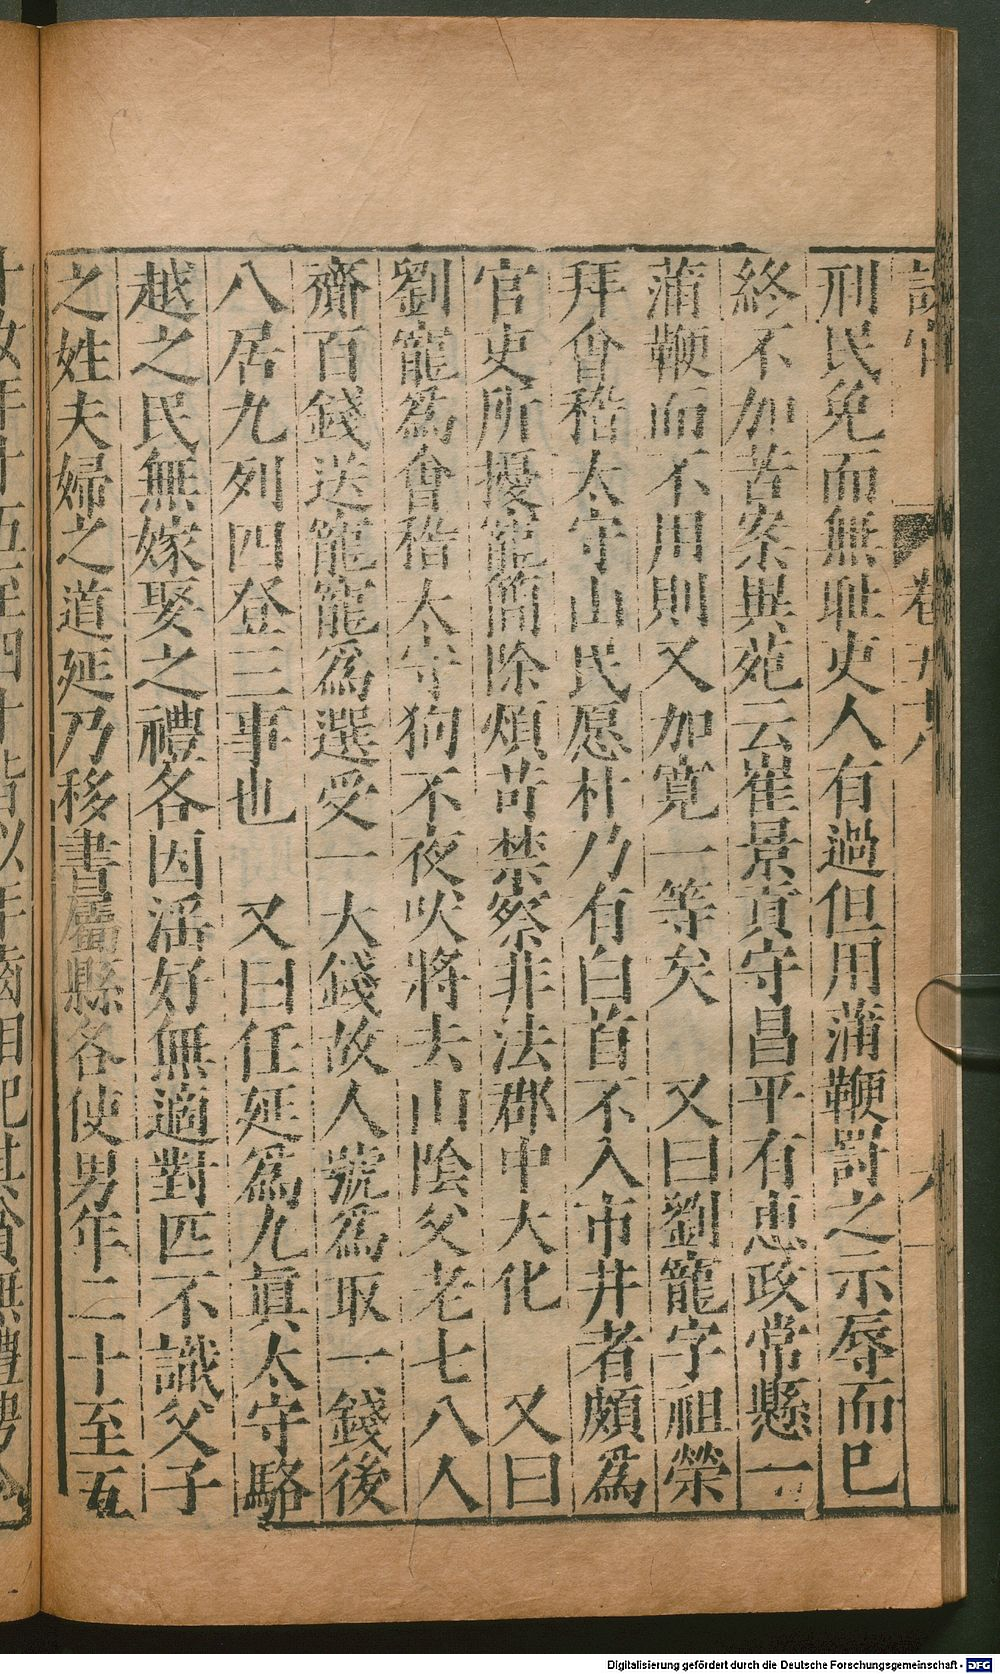 刑民免而無耻吏人有過但用蒲鞭罰之示辱而巳
終不加苦案異苑云崔景貢守昌平有惠政常懸一
蒲鞭而不用則又加寛一等矣　又曰劉寵字祖榮
拜會稽太守山民愿朴乃有白首不入市井者頗爲
官吏所擾寵簡除煩苛禁察非法郡中大化　又曰
劉寵爲會稽太守狗不夜吠將去山陰父老七八人
齎百錢送寵寵爲選受一大錢故人號爲取一錢後
八居九列四登三事也　又曰任延爲九眞太守駱
越之民無嫁娶之禮各因淫好無適對匹不識父子
之姓夫婦之道延乃移書屬縣各使男年二十至五
Digitalisierung gefördert durch die Deutsche Forschungsgemeinschaft - DFG